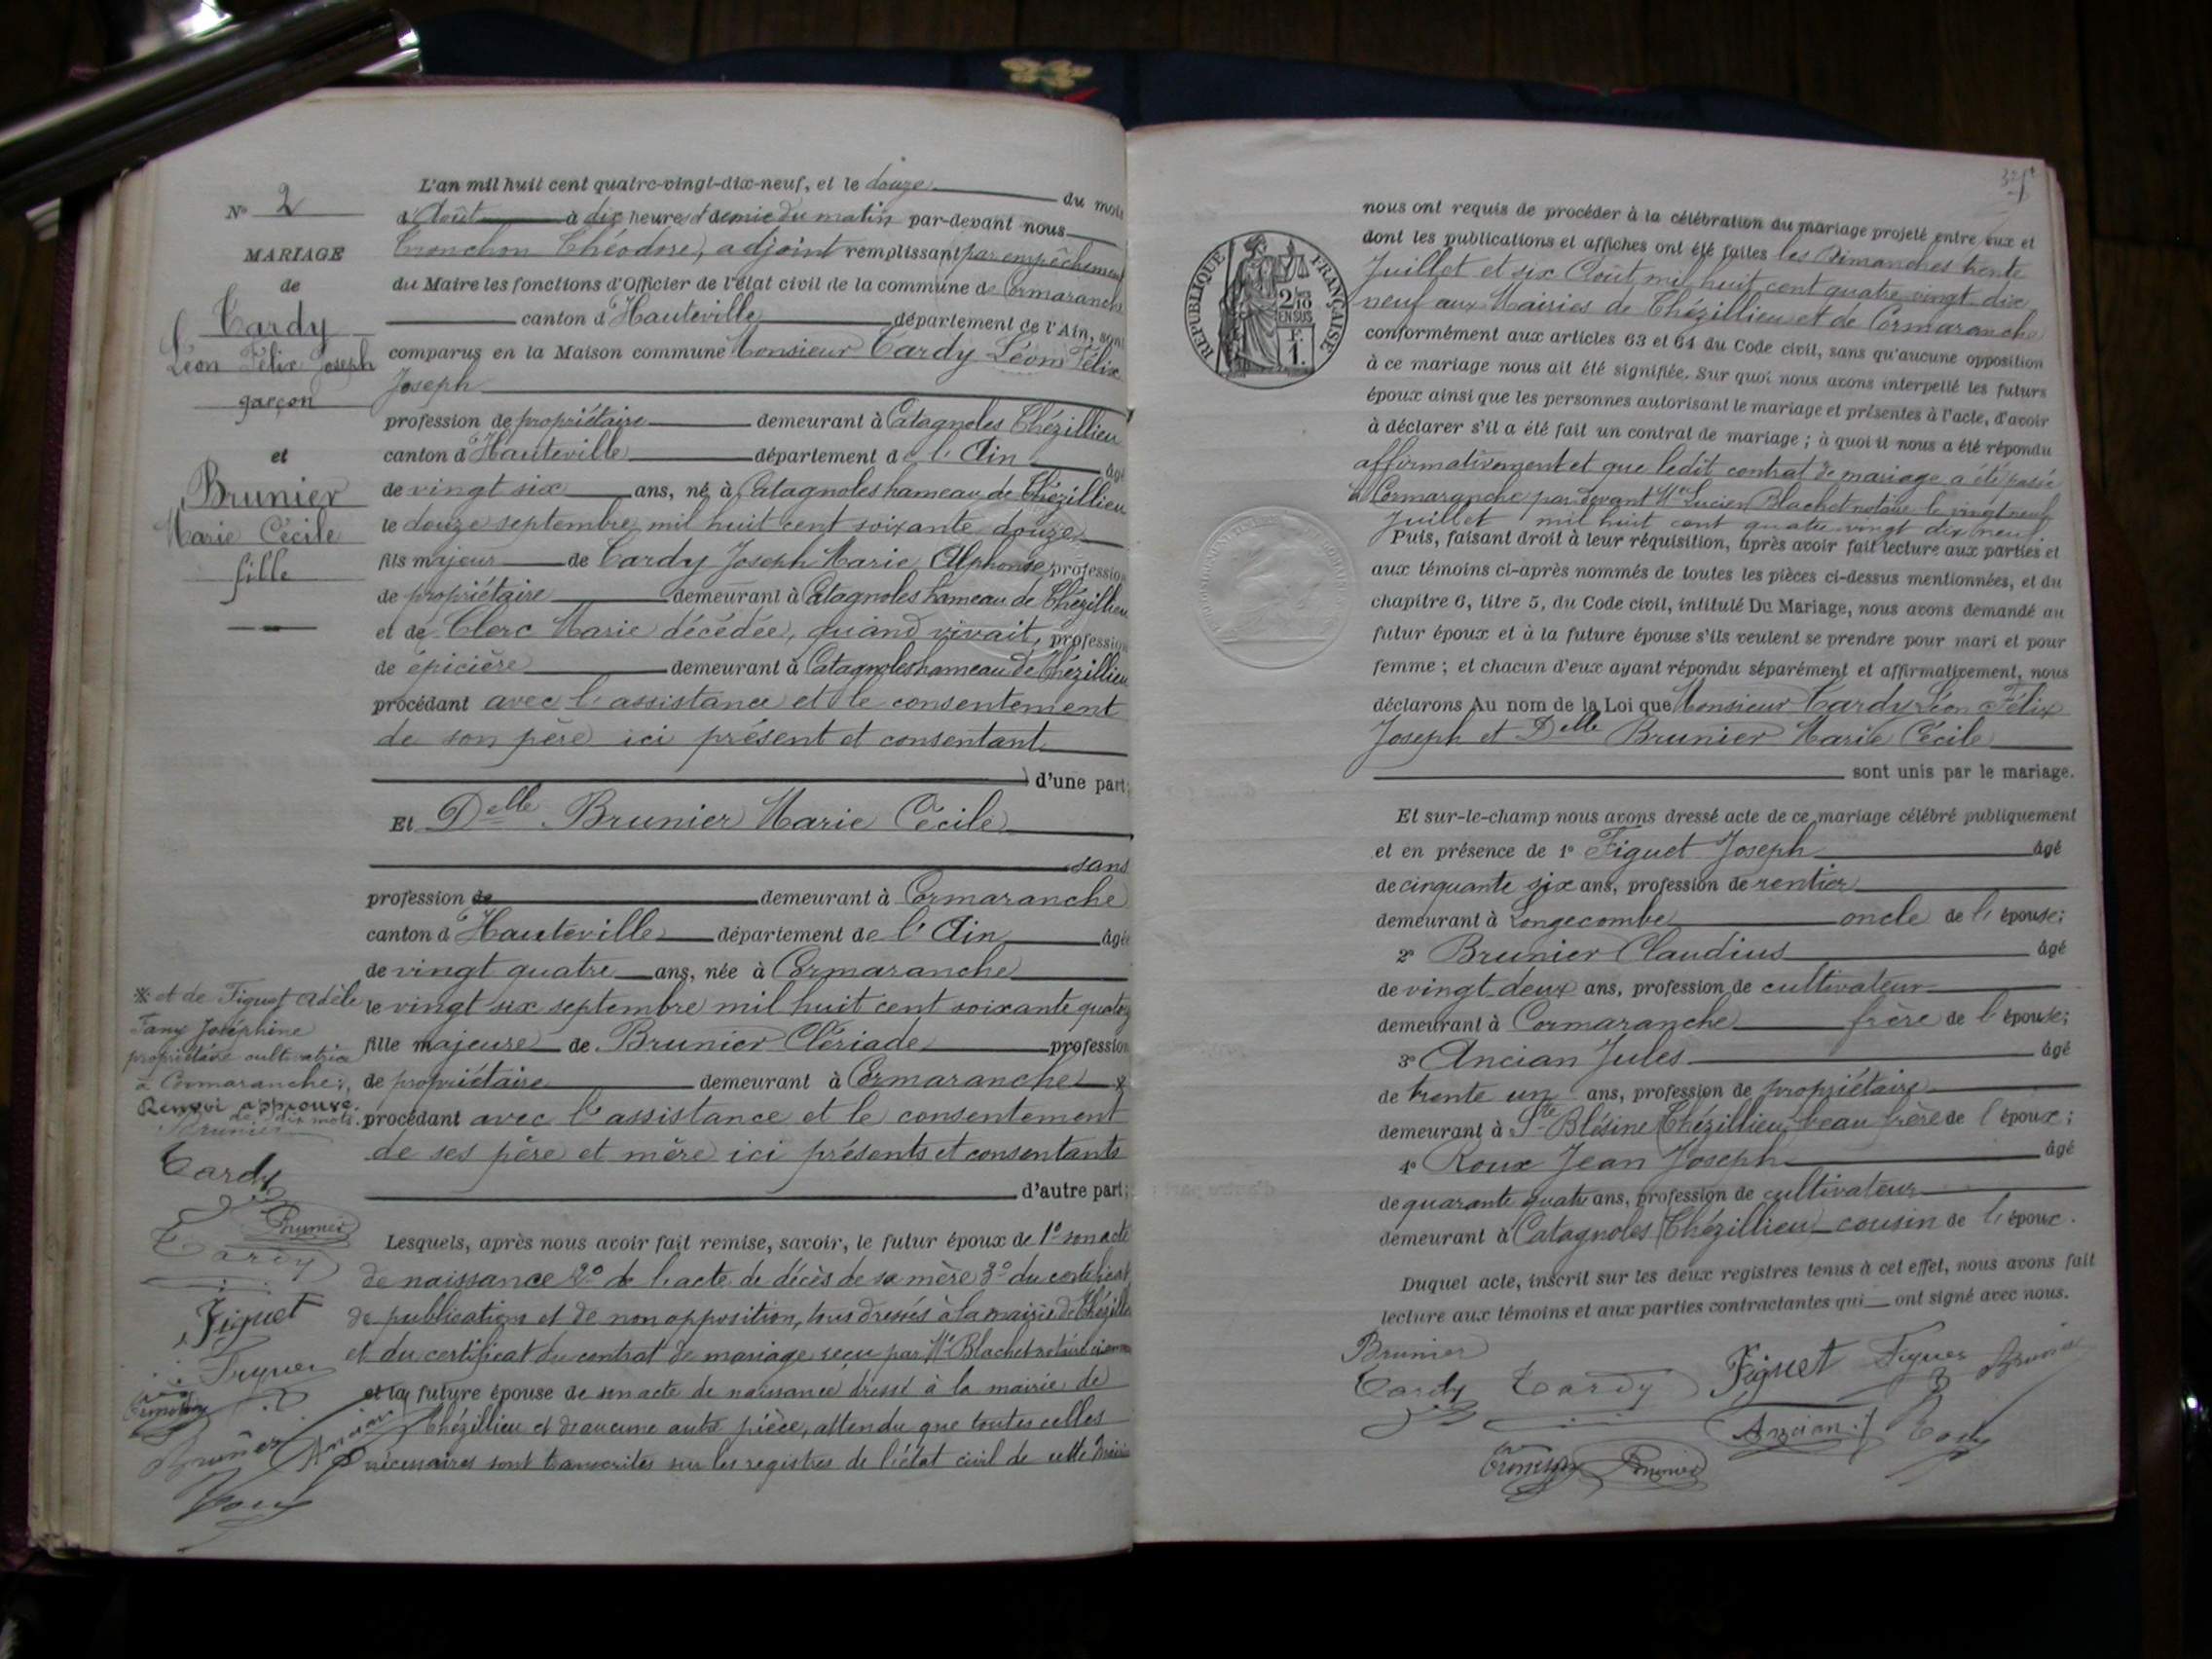 L'an mil huit cent quatre-vingt-dix-neuf, et le douze du mois
d'Août à dix heures et demie du matin par-devant nous
Tronchon Théodore, adjoint remplissant par empêchement
du Maire les fonctions d'Officier de l'état civil de la commune de Cormaranche
canton d'Hauteville département de l'Ain, sont
comparus en la Maison commune Monsieur Tardy Léon Félix
Joseph
profession de propriétaire demeurant à Catagnoles Thézillieu
canton d'Hauteville département de l'Ain âgé
de vingt six ans, né à Catagnoles hameau de Thézillieu
le douze septembre mil huit cent soixante douze
fils majeur de Tardy Joseph Marie Alphonse, profession
de propriétaire demeurant à Catagnoles hameau de Thézillieu
et de Clerc Marie décédée, quand vivait, profession
de épicière demeurant à Catagnoles hameau de Thézillieu
procédant avec l'assistance et le consentement
de son père ici présent et consentant
d'une part;
Et Delle Brunier Marie Cécile
sans
profession de demeurant à Cormaranche
canton d'Hauteville département de l'Ain âgée
de vingt quatre ans, née à Cormaranche
le vingt six septembre mil huit cent soixante quatorze
fille majeure de Brunier Clériade profession
de propriétaire demeurant à Cormaranche *
procédant avec l'assistance et le consentement
de ses père et mère ici présents et consentants
d'autre part;
Lesquels, après nous avoir fait remise, savoir, le futur époux de 1° son acte
de naissance 2° de l'acte de décès de sa mère 3° du certificat
de publication et de non opposition, tous dressés à la mairie de Thézillieu
et du certificat du contrat de mariage reçu par Me Blachet notaire
et la future épouse de son acte de naissance dressé à la mairie de
Thézillieu et de aucune autre pièce, attendu que toutes celles
nécessaires sont transcrites sur les registres de l'état civil de cette Mairie
N° 2
MARIAGE
de
Tardy
Léon Félix Joseph
garçon
et
Brunier
Marie Cécile
fille
* et de Figuet Adèle
Fany Joséphine
propriétaire cultivatrice
à Cormaranche,
Renvoi approuvé
de dix mots.
Brunier
Tardy
Brunier
Tardy
Figuet
Figuet
Tronchon
Brunier
Ancian
Roux
nous ont requis de procéder à la célébration du mariage projeté entre eux et
dont les publications et affiches ont été faites les Dimanches trente
Juillet et six Août mil huit cent quatre vingt dix
neuf aux Mairies de Thézillieu et de Cormaranche
conformément aux articles 63 et 64 du Code civil, sans qu'aucune opposition
à ce mariage nous ait été signifiée. Sur quoi nous avons interpellé les futurs
époux ainsi que les personnes autorisant le mariage et présentes à l'acte, d'avoir
à déclarer s'il a été fait un contrat de mariage ; à quoi il nous a été répondu
affirmativement et que ledit contrat de mariage a été passé
à Cormaranche par devant Me Lucien Blachet notaire le vingt neuf
Juillet mil huit cent quatre vingt dix neuf.
Puis, faisant droit à leur réquisition, après avoir fait lecture aux parties et
aux témoins ci-après nommés de toutes les pièces ci-dessus mentionnées, et du
chapitre 6, titre 5, du Code civil, intitulé Du Mariage, nous avons demandé au
futur époux et à la future épouse s'ils veulent se prendre pour mari et pour
femme ; et chacun d'eux ayant répondu séparément et affirmativement, nous
déclarons Au nom de la Loi que Monsieur Tardy Léon Félix
Joseph et Delle Brunier Marie Cécile
sont unis par le mariage.
Et sur-le-champ nous avons dressé acte de ce mariage célébré publiquement
et en présence de 1° Figuet Joseph âgé
de cinquante six ans, profession de rentier
demeurant à Longecombe oncle de l'épouse;
2° Brunier Claudius âgé
de vingt deux ans, profession de cultivateur
demeurant à Cormaranche frère de l'épouse;
3° Ancian Jules âgé
de trente un ans, profession de propriétaire
demeurant à Ste Blésine Thézillieu, beau frère de l'époux;
4° Roux Jean Joseph âgé
de quarante quatre ans, profession de cultivateur
demeurant à Catagnoles Thézillieu cousin de l'époux.
Duquel acte, inscrit sur les deux registres tenus à cet effet, nous avons fait
lecture aux témoins et aux parties contractantes qui ont signé avec nous.
Brunier
Tardy Tardy Figuet Figuet Brunier
Ancian Roux
Tronchon Brunier
REPUBLIQUE FRANÇAISE
2/10
EN SUS
F.
1.